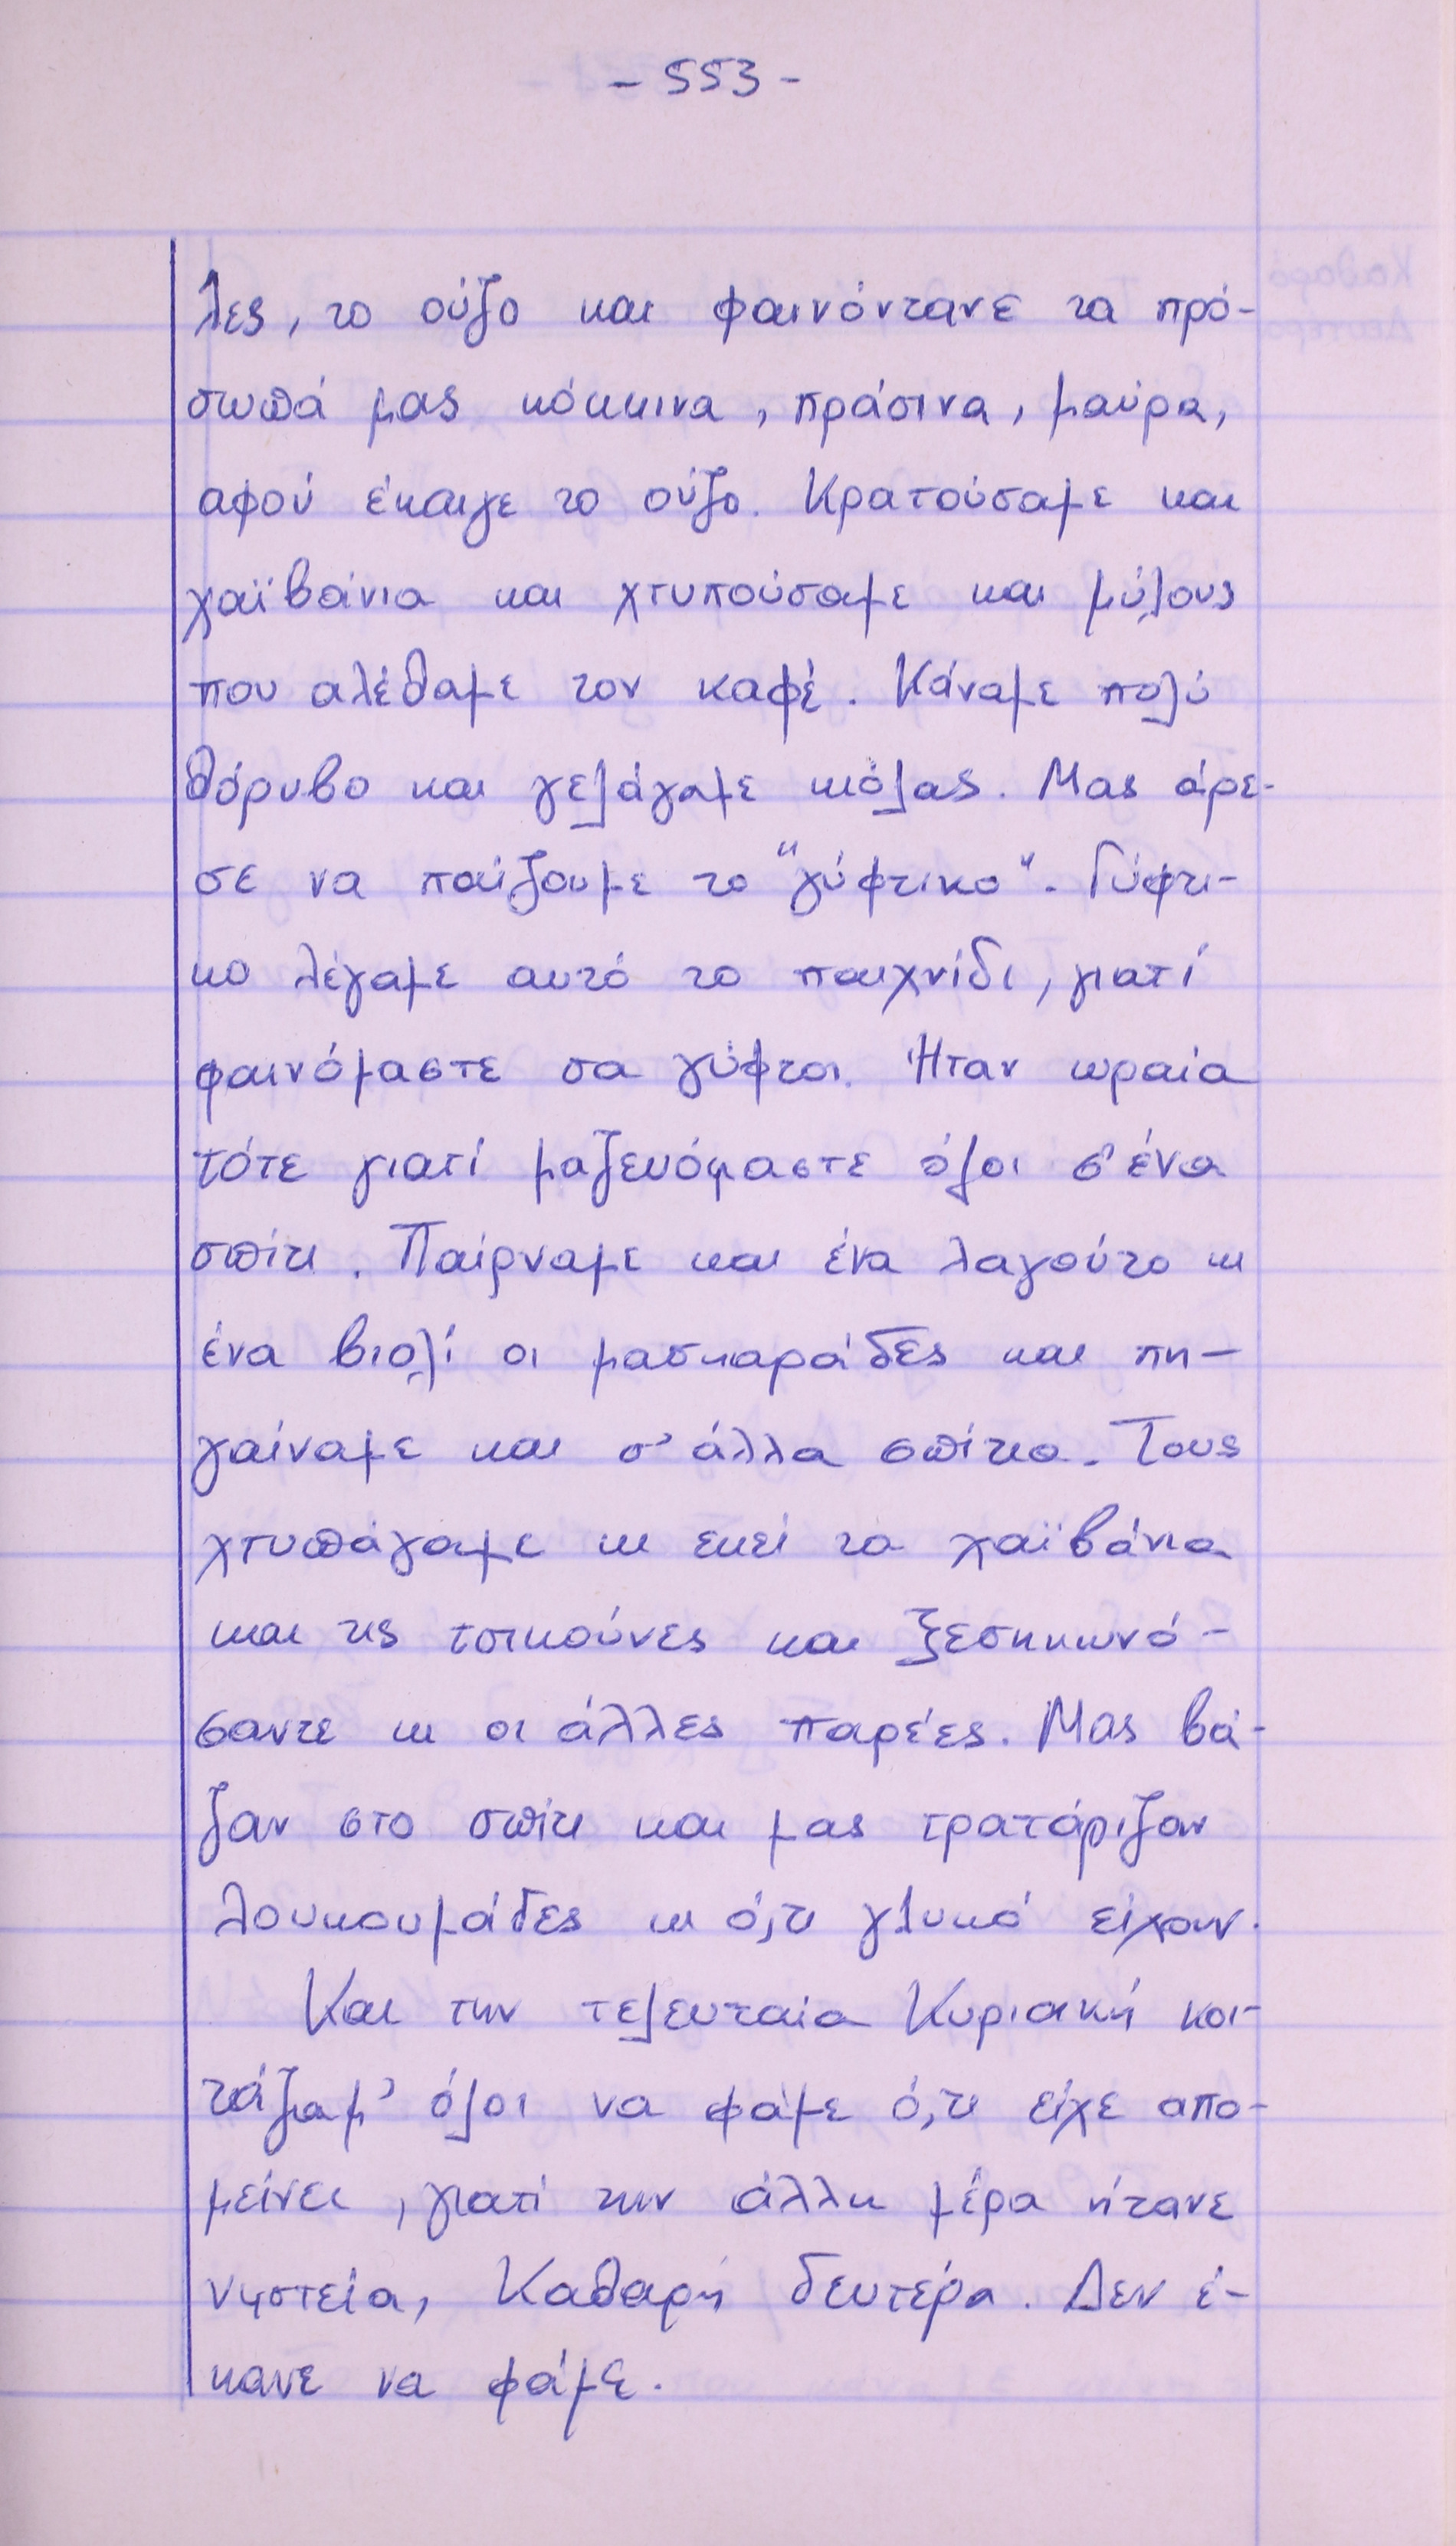 - 553 -
λες, το ούζο και φαινόντανε τα πρό-
σωπά μας κόκκινα, πράσινα, μαύρα,
αφού έκαιγε το ούζο. Κρατούσαμε και
χαϊβάνια και χτυπούσαμε και μύλους
που αλέθαμε τον καφέ. Κάναμε πολύ
θόρυβο και γελάγαμε κιόλας. Μας άρε-
σε να παίζουμε το "γύφτικο". Γύφτι-
κο λέγαμε αυτό το παιχνίδι, γιατί
φαινόμαστε σα γύφτοι. Ήταν ωραία
τότε γιατί μαζευόμαστε όλοι σ' ένα
σπίτι. Παίρναμε και ένα λαγούτο κι
ένα βιολί οι μασκαράδες και πη-
γαίναμε και σ' άλλα σπίτια. Τους
χτυπάγαμε κι εκεί τα χαϊβάνια
και τις τσικούνες και ξεσηκωνό-
σαντε κι οι άλλες παρέες. Μας βά-
ζαν στο σπίτι και μας τρατάριζαν
λουκουμάδες κι ό,τι γλυκό είχουν.
Και την τελευταία Κυριακή κοι-
τάζιαμ' όλοι να φάμε ό,τι είχε απο-
μείνει, γιατί την άλλη μέρα ήτανε
νηστεία, Καθαρή δευτέρα. Δεν έ-
κανε να φάμε.